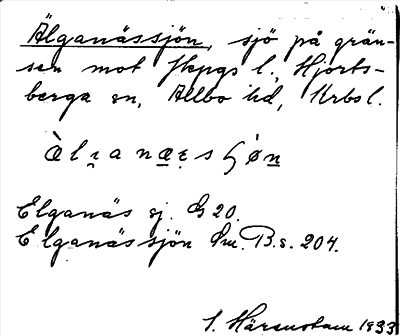 Älganässjön, sjö på grän-
sen mot Jkpgs l., Hjorts-
berga sn, Allbo hd, Krbs l.
Älganässjön
Elganäs sj. G 20.
Elganässjön Sm. B. s. 204.
S. Härenstam 1933